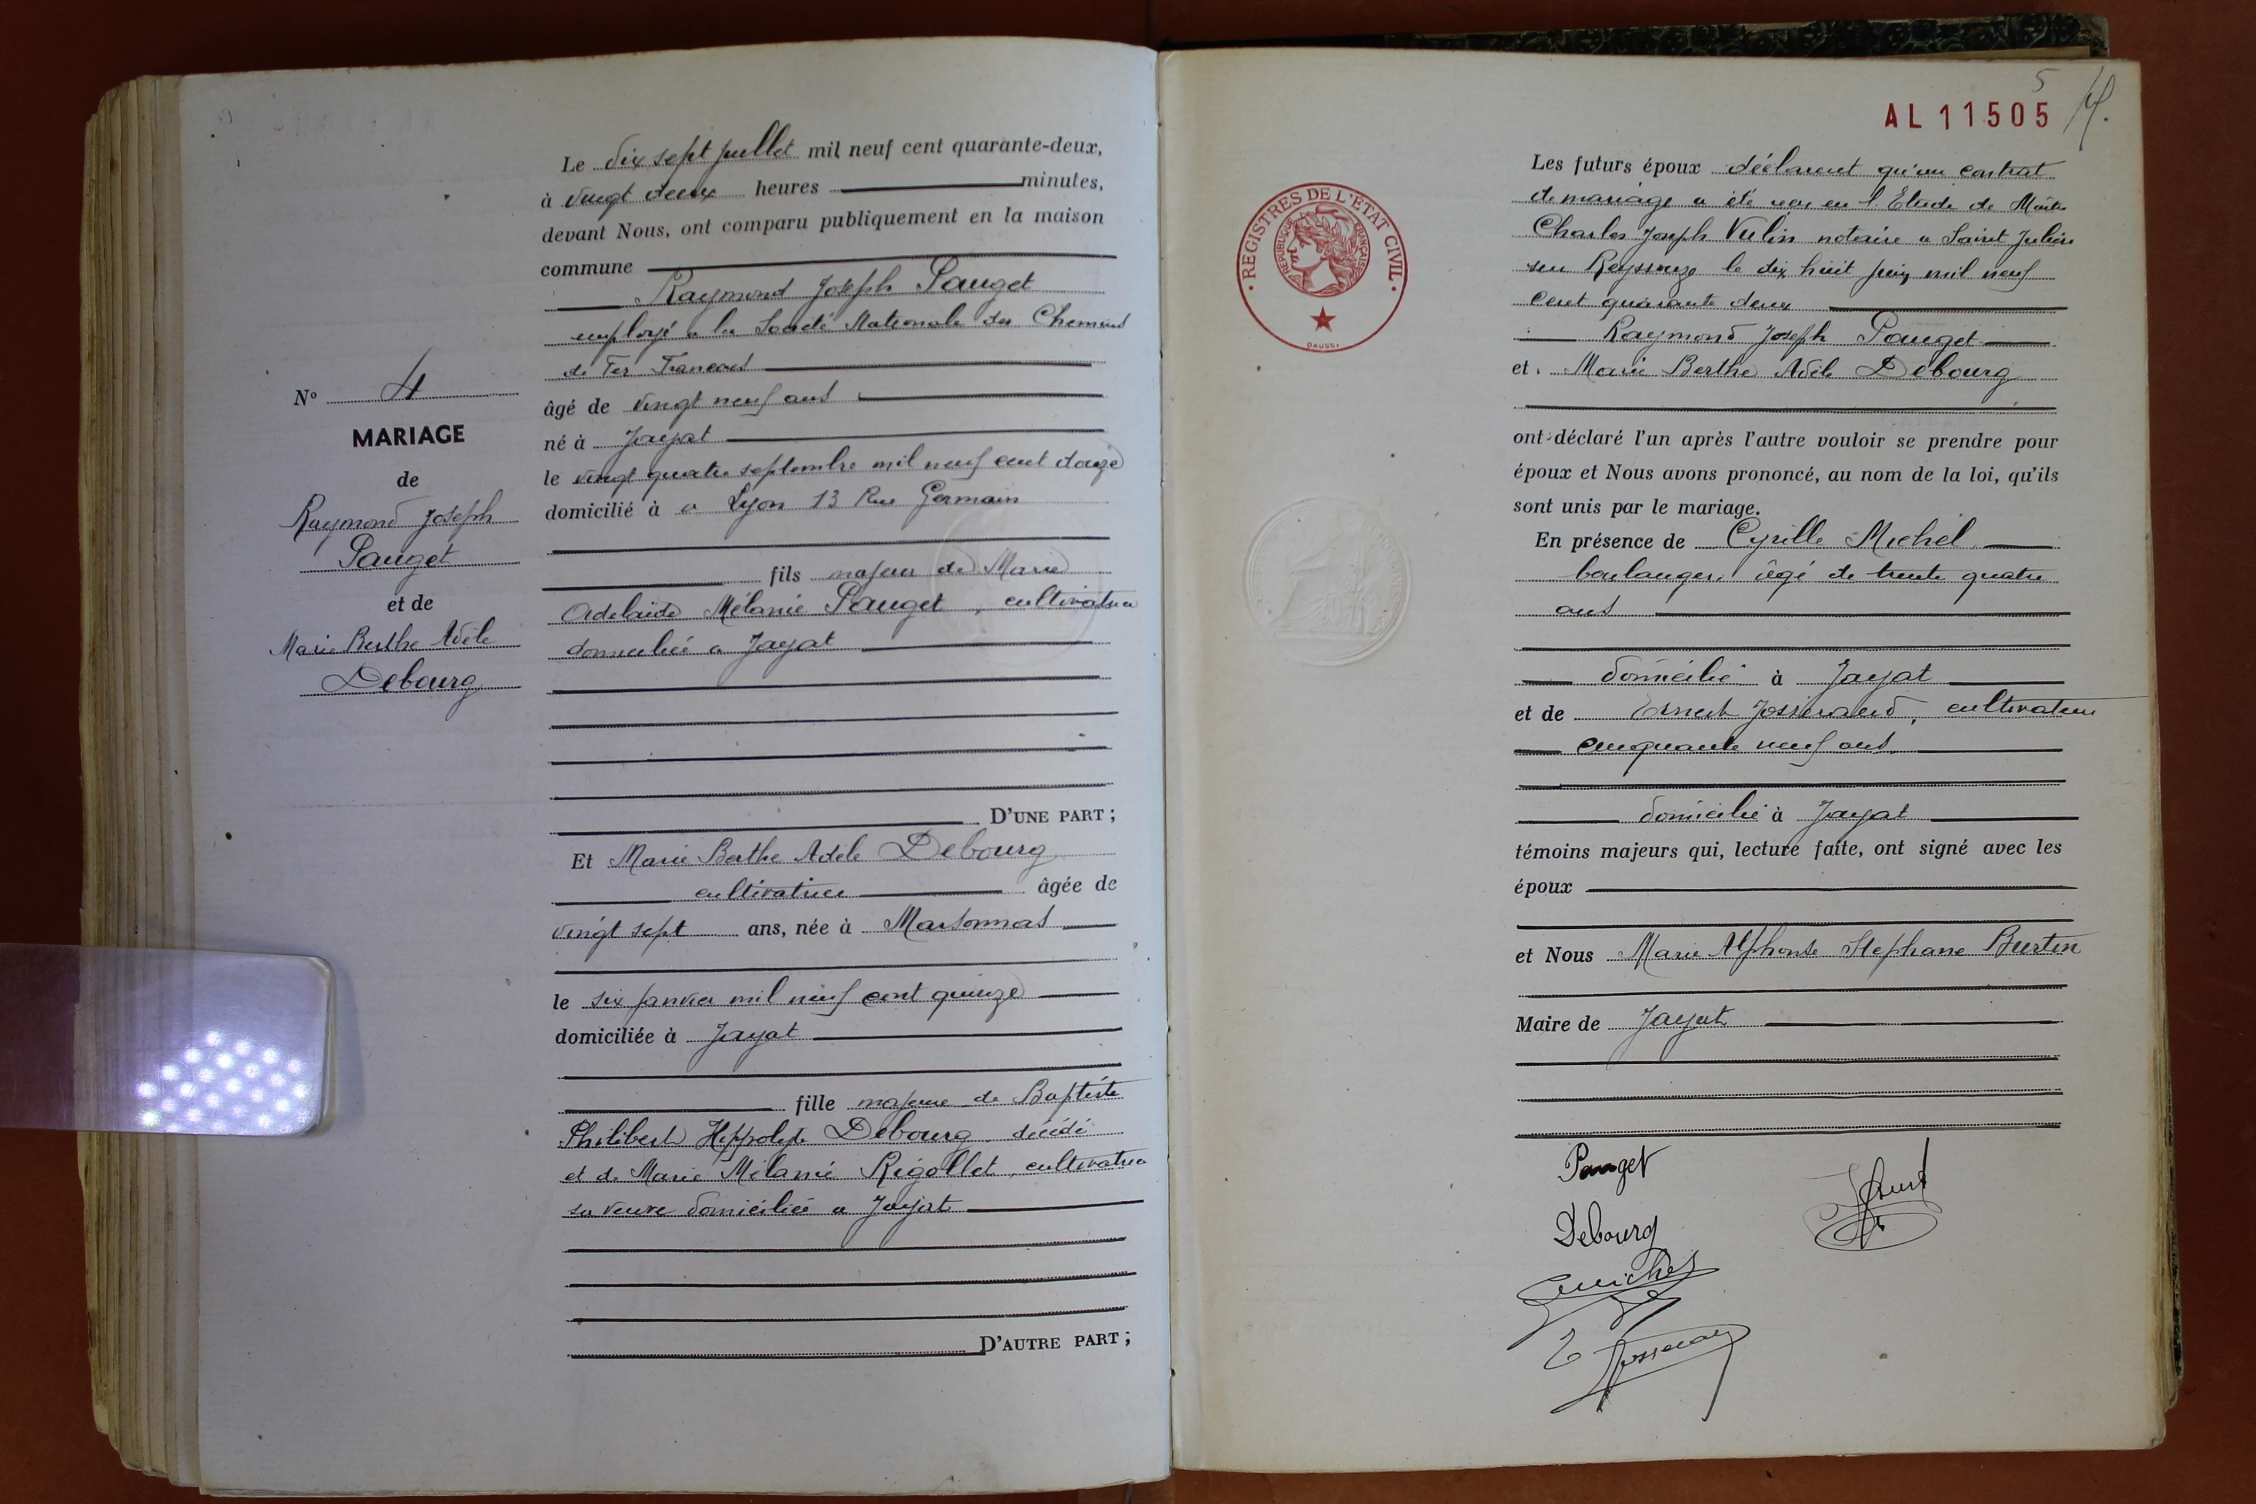 N° 4
MARIAGE
de
Raymond Joseph
Pauget
et de
Marie Berthe Adèle
Debourg
Le dix sept juillet mil neuf cent quarante-deux,
à vingt deux heures minutes,
devant Nous, ont comparu publiquement en la maison
commune
Raymond Joseph Pauget
employé a la Société Nationale des Chemins
de Fer Francais
âgé de vingt neuf ans
né à Jayat
le vingt quatre septembre mil neuf cent douze
domicilié à a Lyon 13 Rue Germain
fils majeur de Marie
Adelaide Mélanie Pauget, cultivatrice
domiciliée a Jayat
D'UNE PART ;
Et Marie Berthe Adèle Debourg
cultivatrice âgée de
vingt sept ans, née à Marsonnas
le six janvier mil neuf cent quinze
domiciliée à Jayat
fille majeure de Baptiste
Philibert Hippolyte Debourg décédé
et de Marie Mélanie Rigollet, cultivatrice
sa veuve domiciliée a Jayat
D'AUTRE PART ;
5
AL 11505
REGISTRES DE L'ÉTAT CIVIL
RÉPUBLIQUE FRANÇAISE
DAUSSI
Les futurs époux déclarent qu'un contrat
de mariage a été recu en l'Etude de Maître
Charles Joseph Vulin notaire a Saint Julien
sur Reyssouze le dix huit juin mil neuf
cent quarante deux
Raymond Joseph Pauget
et Marie Berthe Adèle Debourg
ont déclaré l'un après l'autre vouloir se prendre pour
époux et Nous avons prononcé, au nom de la loi, qu'ils
sont unis par le mariage.
En présence de Cyrille Michel
boulanger, âgé de trente quatre
ans
domicilié à Jayat
et de Ernest Josserand, cultivateur
cinquante neuf ans
domicilié à Jayat
témoins majeurs qui, lecture faite, ont signé avec les
époux
et Nous Marie Alphonse Stephane Burtin
Maire de Jayat
Pauget
Debourg